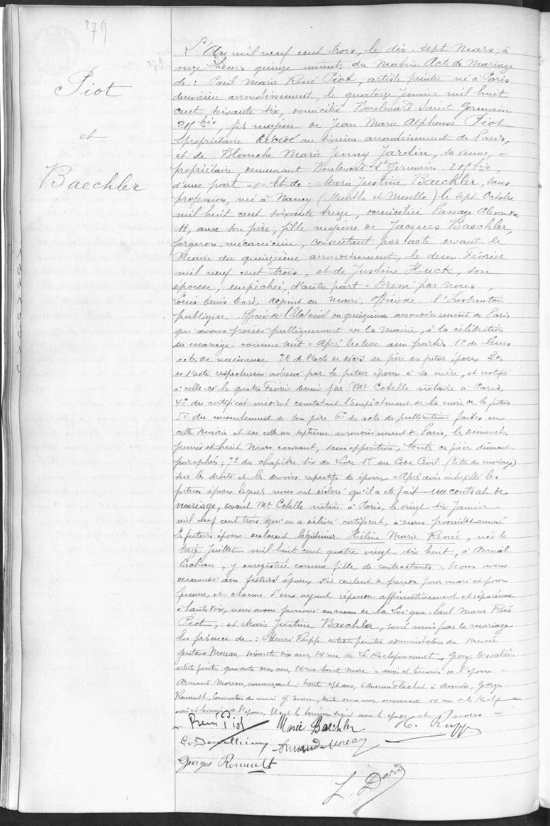 279
Piot
et
Baechler
L'An mil neuf cent trois, le dix-sept Mars à
onze heures quinze minutes du matin Acte de Mariage
de : Paul Marie René Piot, artiste peintre né à Paris
deuxième arrondissement, le quatorze Janvier mil huit
cent soixante six, domicilié Boulevard Saint Germain
211 bis, fils majeur de Jean Marie Alphonse Piot
propriétaire décédé au arrondissement de Paris,
et de Blanche Marie Jenny Jardin, sa veuve,
propriétaire, demeurant Boulevard St Germain 211 bis
d'une part. Et de : Marie Justine Baechler, sans
profession, née à Nancy (Meurthe et Moselle) le sept Octobre
mil huit cent soixante treize, domiciliée Passage
11, avec son père, fille majeure de Jacques Baechler,
forgeron-mécanicien, consentant par acte devant le
Maire du quinzième arrondissement, le deux Février
mil neuf cent trois, et de Justine Huck, son
épouse, empêchée, d'autre part. Dressé par nous,
Louis Denis Daré, adjoint au Maire, Officier de l'Instruction
publique, Officier de l'Etat civil du quinzième arrondissement de Paris
qui avons procédé publiquement en la mairie, à la célébration
du mariage comme suit : Après lecture aux parties 1° de leurs
actes de naissance 2° de l'acte de décès du père du futur époux 3° de
l'acte respectueux adressé par le futur époux à sa mère, et notifié
à celle-ci le quatre Février dernier par Me Cotelle notaire à Paris,
4° du certificat médical constatant l'empêchement de la mère de la future
5° du consentement de son père 6° des actes de publications faites en
cette Mairie et en celle du septième arrondissement de Paris, les dimanches
premier et huit Mars courant, sans opposition, toutes ces pièces dûment
paraphées ; 7° du chapitre six du Livre 1er du Code Civil (titre du mariage)
sur les droits et les devoirs respectifs des époux. Après avoir interpellé les
futurs époux lesquels nous ont déclaré qu'il a été fait un contrat de
mariage, devant Me Cotelle notaire à Paris, le vingt six Janvier
mil neuf cent trois qui en a délivré certificat,
les futurs époux déclarent légitimer Hélène Marie Renée, née le
treize Juillet mil huit cent quatre vingt dix huit, à
y enregistrée comme fille des contractants. Nous avons
demandé aux futurs époux s'ils veulent se prendre pour mari et pour
femme, et chacun d'eux ayant répondu affirmativement et séparément
à haute voix, nous avons prononcé au nom de la Loi que Paul Marie René
Piot, et Marie Justine Baechler, sont unis par le mariage
En présence de : Henri Rupp artiste peintre administrateur du Musée
Gustave Moreau, soixante six ans 14 rue de La Rochefoucauld, George Desvallières
artiste peintre quarante deux ans, 14 rue Saint Marc
Armand Moreau, Georges
Rouault Conservateur du musée G. Moreau, trente un ans
René Piot Marie Baechler H. Rupp
G. Desvallières Armand Moreau
Georges Rouault
L. Daré